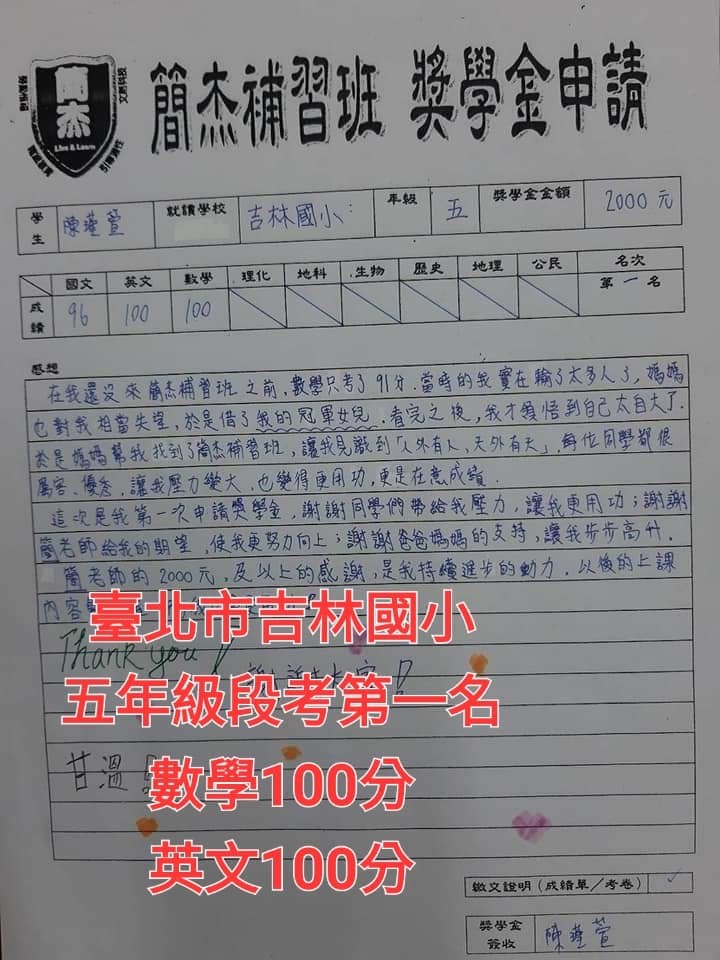 簡杰
Live & Learn
簡杰補習班 獎學金申請
學生 陳 萱 就讀學校 吉林國小 年級 五 獎學金金額 2000元
國文 英文 數學 理化 地科 生物 歷史 地理 公民 名次
成績 96 100 100 第一名
感想
在我還沒來簡杰補習班之前,數學只考了91分.當時的我實在輸了太多人了,媽媽
也對我相當失望,於是借了我的冠軍女兒.看完之後,我才領悟到自己太自大了.
於是媽媽幫我找到了簡杰補習班,讓我見識到「人外有人,天外有天」,每位同學都很
厲害、優秀,讓我壓力變大,也變得更用功,更是在意成績.
這次是我第一次申請獎學金,謝謝同學們帶給我壓力,讓我更用功;謝謝
簡老師給我的期望,使我更努力向上;謝謝爸爸媽媽的支持,讓我步步高升.
簡老師的2000元,及以上的感謝,是我持續進步的動力.以後的上課
內容
臺北市吉林國小
Thank you!
五年級段考第一名
甘溫
數學100分
英文100分
繳交證明(成績單/考卷) ✓
獎學金簽收 陳 萱